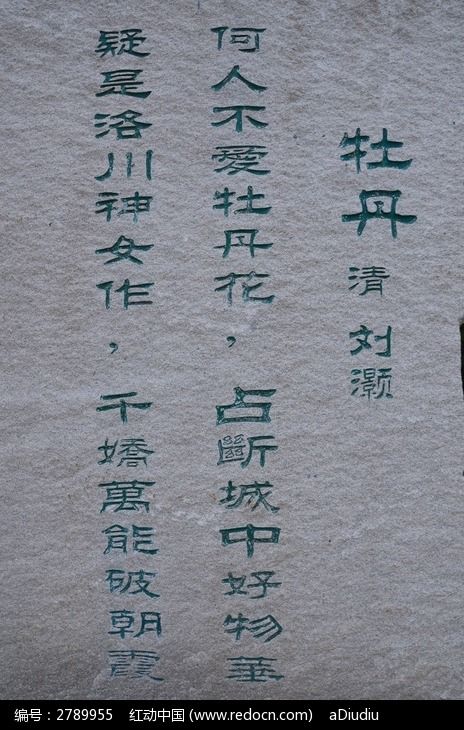 牡丹 清 刘灏
何人不愛牡丹花，占斷城中好物華
疑是洛川神女作，千嬌萬能破朝霞
编号：2789955 红动中国 (www.redocn.com) aDiudiu